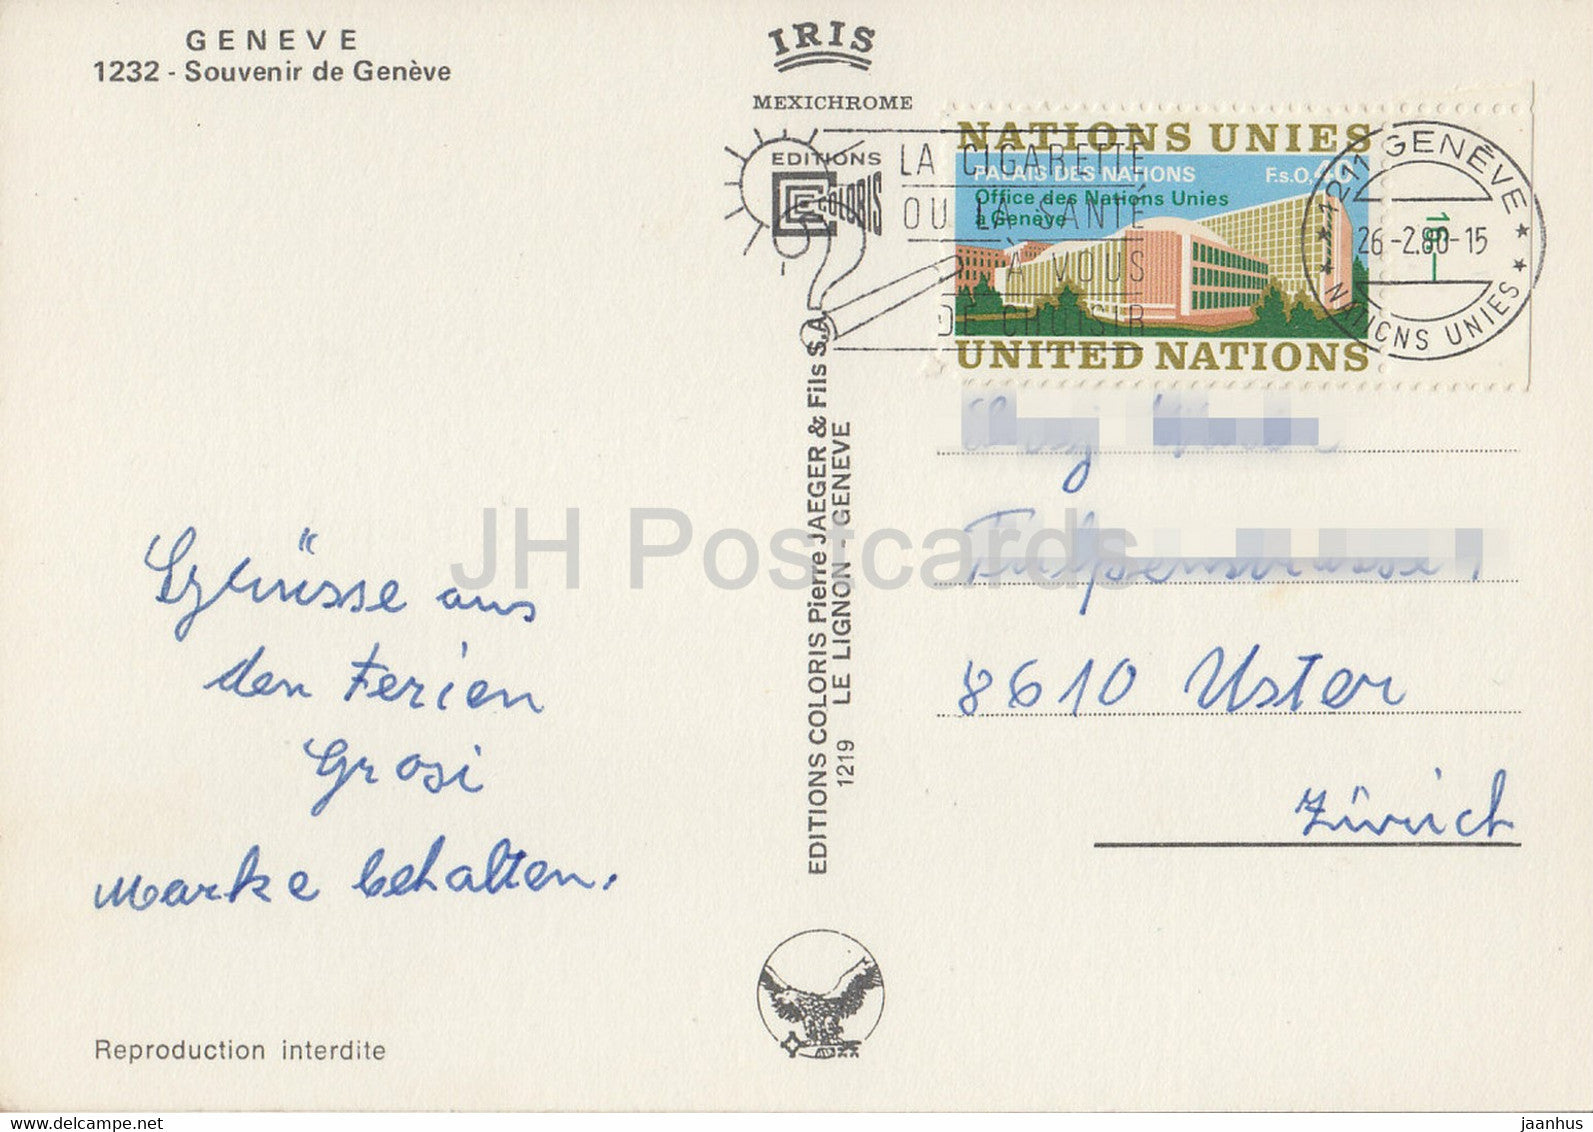 GENEVE
1232 - Souvenir de Genève
IRIS
MEXICHROME
EDITIONS
COLORIS
LA CIGARETTE
OU LA SANTÉ
À VOUS
DE CHOISIR
NATIONS UNIES
PALAIS DES NATIONS F.s.0,40
Office des Nations Unies
à Genève
UNITED NATIONS
1211 GENÈVE
26-2.80-15
NATIONS UNIES
EDITIONS COLORIS Pierre JAEGER & Fils S.A.
1219 LE LIGNON - GENEVE
Grüsse aus
den Ferien
Grosi
Marke behalten.
8610 Uster
Zürich
Reproduction interdite
JH Postcards
www.delcampe.net
jaanhus